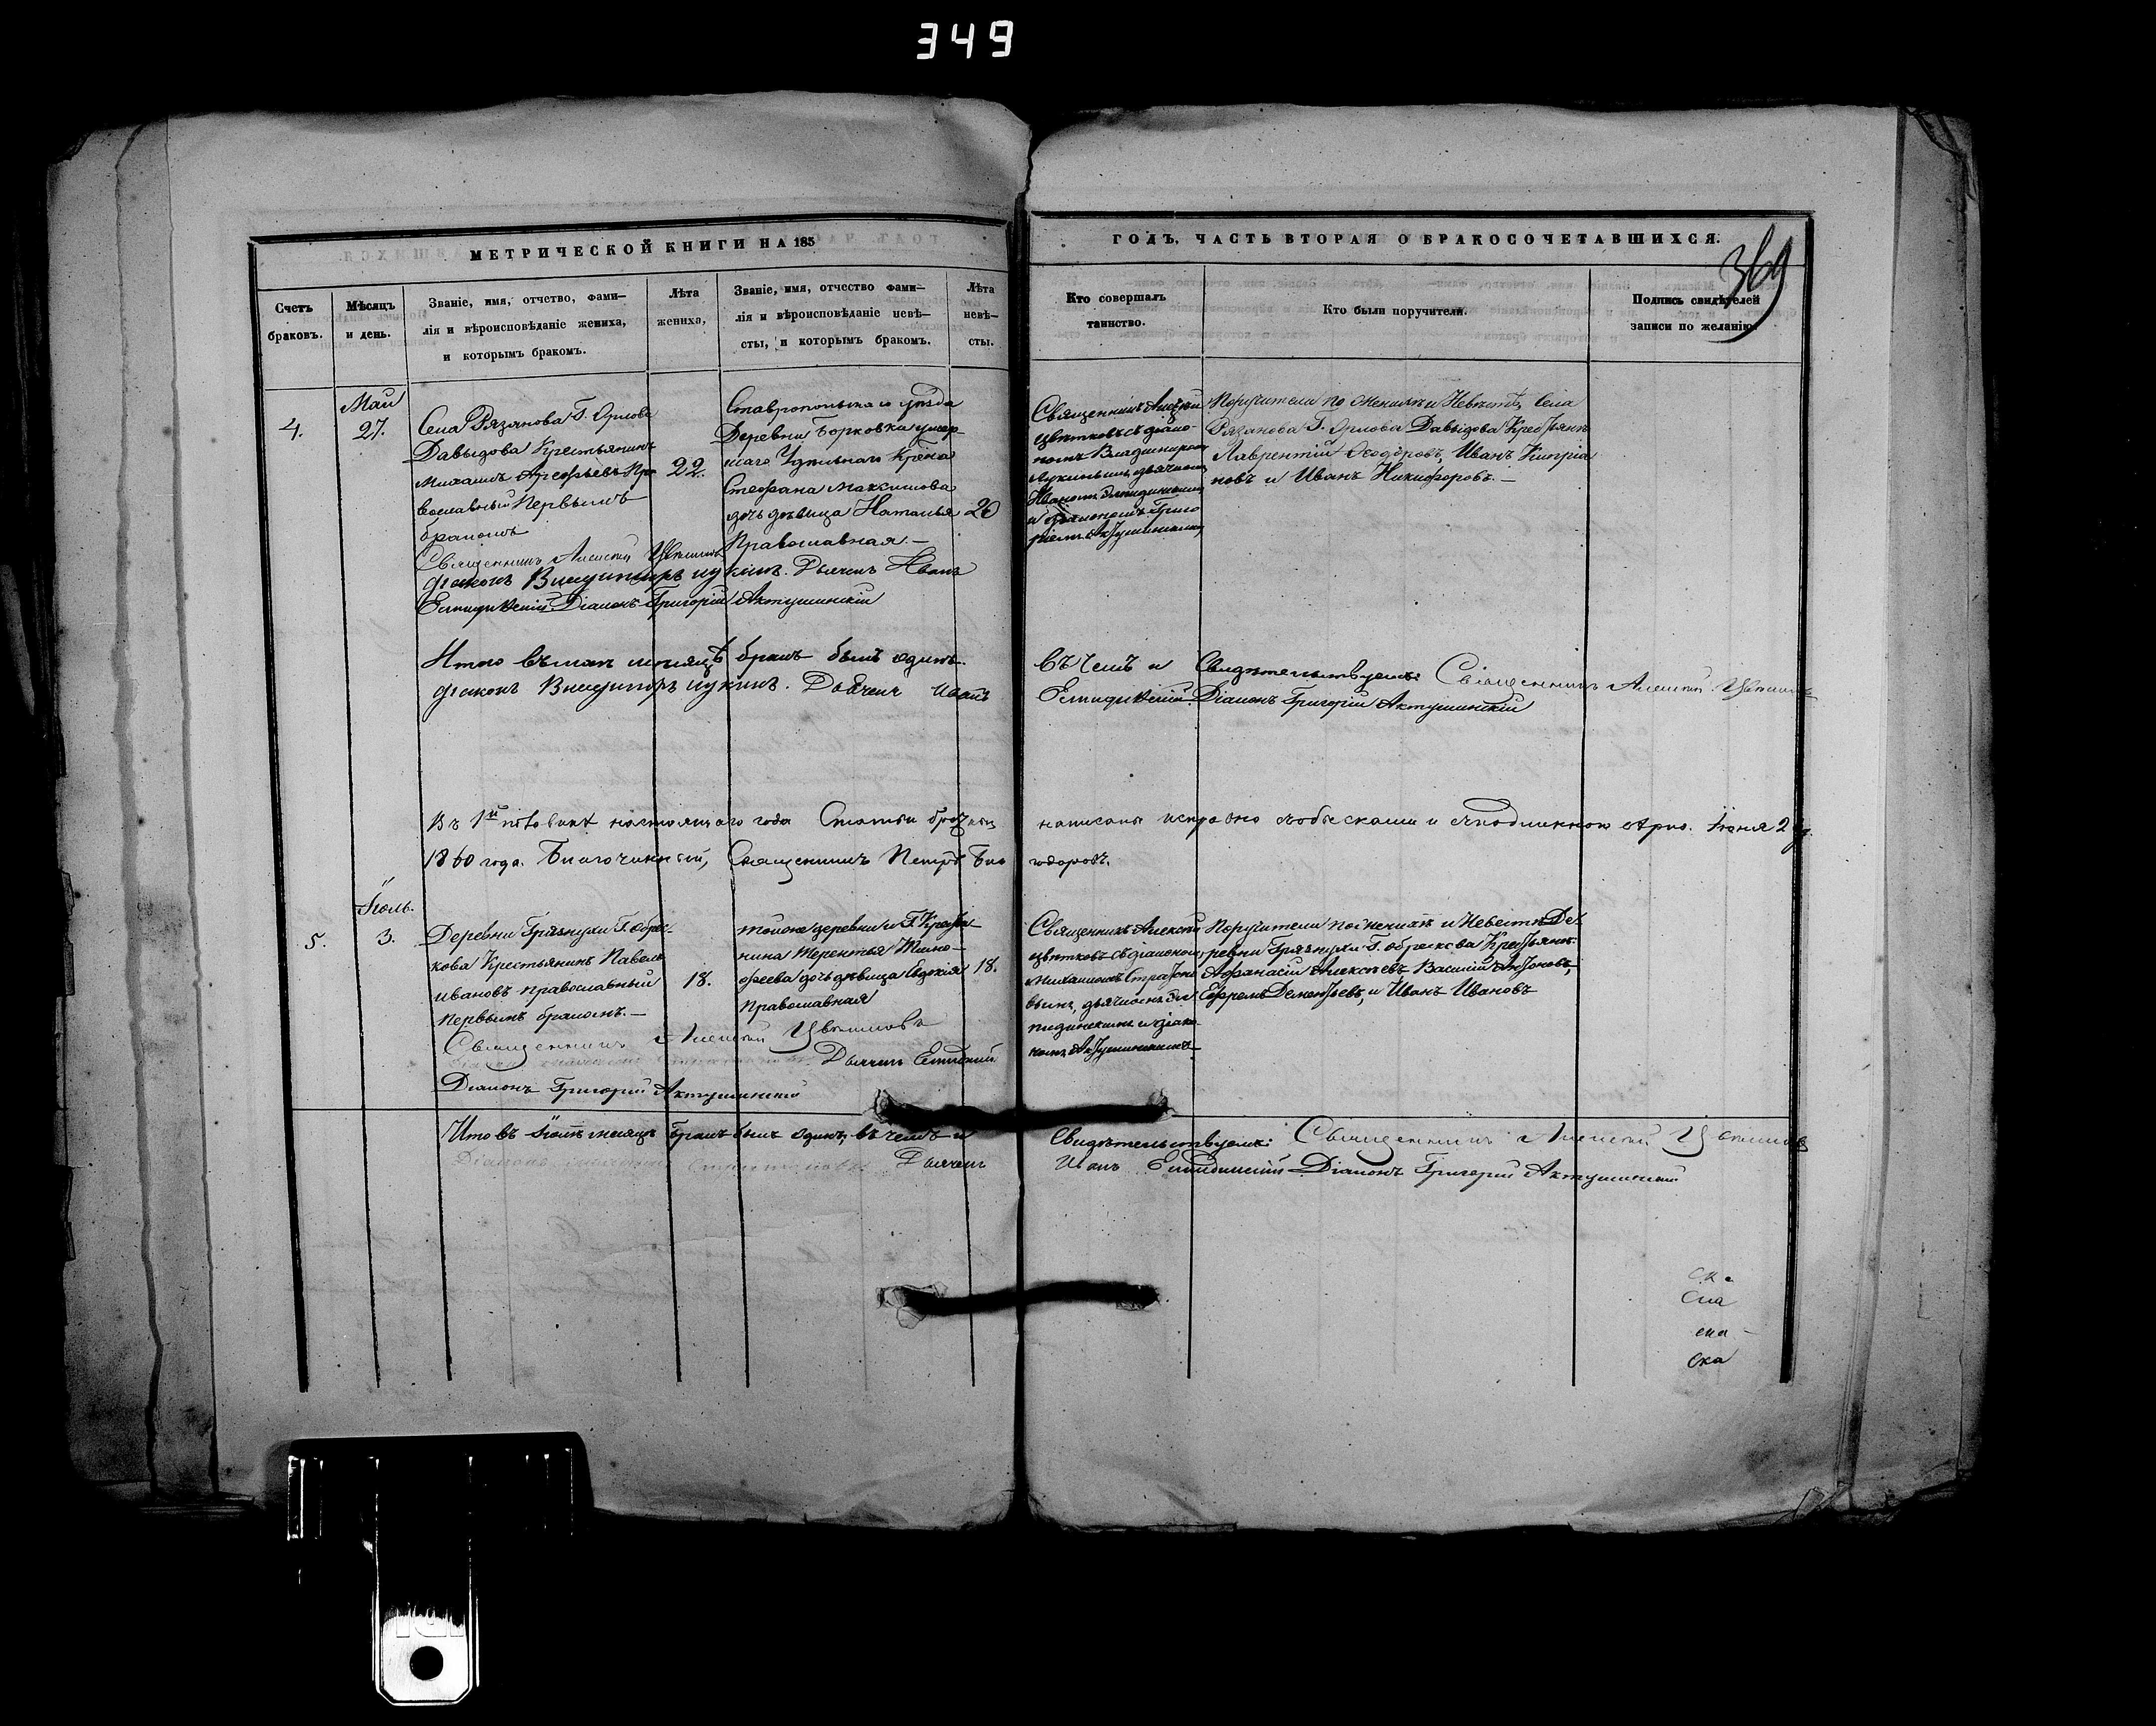 349
МЕТРИЧЕСКОЙ КНИГИ НА 185
ГОДЪ, ЧАСТЬ ВТОРАЯ О БРАКОСОЧЕТАВШИХСЯ.
369
Счетъ
браковъ.
Мѣсяцъ
и день.
Званіе, имя, отчетво, фами—
лія и вѣроисповѣданіе жениха,
и которымъ бракомъ.
Лѣта
жениха,
Званіе, имя, отчество фами—
лія и вѣроисповѣданіе невѣ—
сты, и которымъ бракомъ.
Лѣта
невѣ—
сты.
Кто совершалъ
таинство.
Кто были поручители.
Подпись свидѣтелей
записи по желанію.
4.
Май
27.
Села Рязанова Г. Орлова
Давыдова Крестьянинъ
Михаилъ Арефьевъ Пра
вославный Первымъ
бракомъ
22.
Ставропольскаго уѣзда
Деревни Борковки умер-
шаго Удѣльнаго Крѣна
Стефана Максимова
дочь дѣвица Наталья
Православная.—
20
Священникъ Алексѣй
Цвѣтковъ съ діако-
номъ Владимиромъ
Лукинымъ, дьячкомъ
Иваномъ Елпидинскимъ
и діакономъ Григо
ріемъ Актушинскимъ
Поручители по Женихѣ и Невѣстѣ, Села
Рязанова Г. Орлова Давыдова Крестьяне
Лаврентій Ѳеодоровъ, Иванъ Кипріа
новъ и Иванъ Никифоровъ.—
Священникъ Алексѣй Цвѣтковъ
діаконъ Владимиръ Лукинъ. Дьячекъ Иванъ
Елпидинскій Діаконъ Григорій Актушинскій
Итого въ маѣ мѣсяцѣ бракъ былъ одинъ.
въ чемъ и Свидѣтельствуемъ: Священникъ Алексѣй Цвѣтковъ
діаконъ Владимиръ Лукинъ. Дьячекъ Иванъ
Елпидинскій. Діаконъ Григорій Актушинскій
Въ 1й половинѣ настоящаго года Статьи брачныя
написаны исправно Іюня 2
1860 года. Благочинный, Священникъ Петръ Бла
годоровъ.
5.
Іюль.
3.
Деревни Грязнухи Г. Обрес-
кова Крестьянинъ Павелъ
Ивановъ православный
Первымъ бракомъ.—
18.
тойже деревни и Г. Крестья
нина Терентья Тимо—
феева дочь дѣвица Евдокія
Православная
18.
Священникъ Алексѣй
Цвѣтковъ съ діакономъ
Михаиломъ Стратоно
вымъ, дьячкомъ Ел
пидинскимъ и діако-
номъ Актушинскимъ
Поручители по женихѣ и Невестѣ Де
ревни Грязнухи Г. Обрескова Крестьяне
Афанасій Алексѣевъ, Василій Антоновъ,
Ефремъ Дементьевъ, и Иванъ Ивановъ
Священникъ Алексѣй Цвѣтковъ
Дьячекъ Елпидинскій
Діаконъ Григорій Актушинскій
Итого въ Іюлѣ мѣсяцѣ бракъ былъ одинъ, въ чемъ и
Свидѣтельствуемъ: Священникъ Алексѣй Цвѣтковъ
Діаконъ Михаилъ Стратоновъ Дьячекъ
Иванъ Елпидинскій Діаконъ Григорій Актушинскій
ска
ска
ска
ска